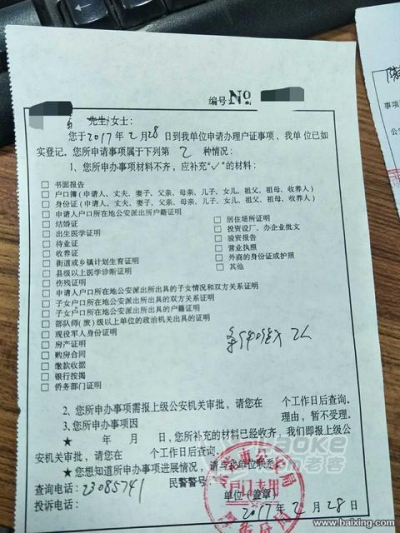 编号No.
先生/女士：
您于2017年2月28日到我单位申请办理户证事项，我单位已如
实登记。您所申请事项属于下列第2种情况：
1、您所申办事项材料不齐，应补充"✓"的材料：
□ 书面报告
□ 户口簿（申请人、丈夫、妻子、父亲、母亲、儿子、女儿、祖父、祖母、收养人）
□ 身份证（申请人、丈夫、妻子、父亲、母亲、儿子、女儿、祖父、祖母、收养人）
□ 申请人户口所在地公安派出所户籍证明
□ 结婚证
□ 出生医学证明
□ 待业证
□ 收养证
□ 街道或乡镇计划生育证明
□ 县级以上医学诊断证明
□ 伤残证明
□ 居住场所证明
□ 投资设厂、办企业批文
□ 验资报告
□ 营业执照
□ 外商的身份证或护照
□ 其他
□ 申请人户口所在地公安派出所出具的子女情况和双方关系证明
□ 子女户口所在地公安派出所出具的双方关系证明
□ 子女户口所在地公安派出所出具的户籍证明
□ 部队师（旅）级以上单位的政治机关出具的证明
□ 现役军人身份证
□ 房产证明
□ 购房合同
□ 缴款收据
□ 银行按揭
□ 侨务部门证明
2、您所申办事项需报上级公安机关审批，请您在 个工作日后查询。
3、您所申办事项因 理由，暂不受理。
★ 年 月 日，您所补充的材料已经收齐，我们即报上级公
安机关审批，请您在 个工作日后查询。
★您想知道所申办事项进展情况，请与我单位联系
查询电话：23085741 民警警号：
投诉电话： 单位（盖章）
2017年2月28日
户口专用
www.baixing.com